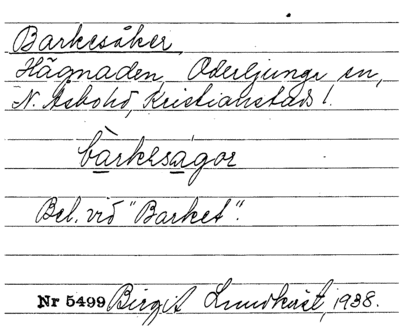 Barkesåker,
Hägnaden, Oderljunga sn,
N. Åsbohd, Kristianstads l.
bàrkesagor
Bel. vid "Barket".
Nr 5499 Birgit Lundkvist, 1938.